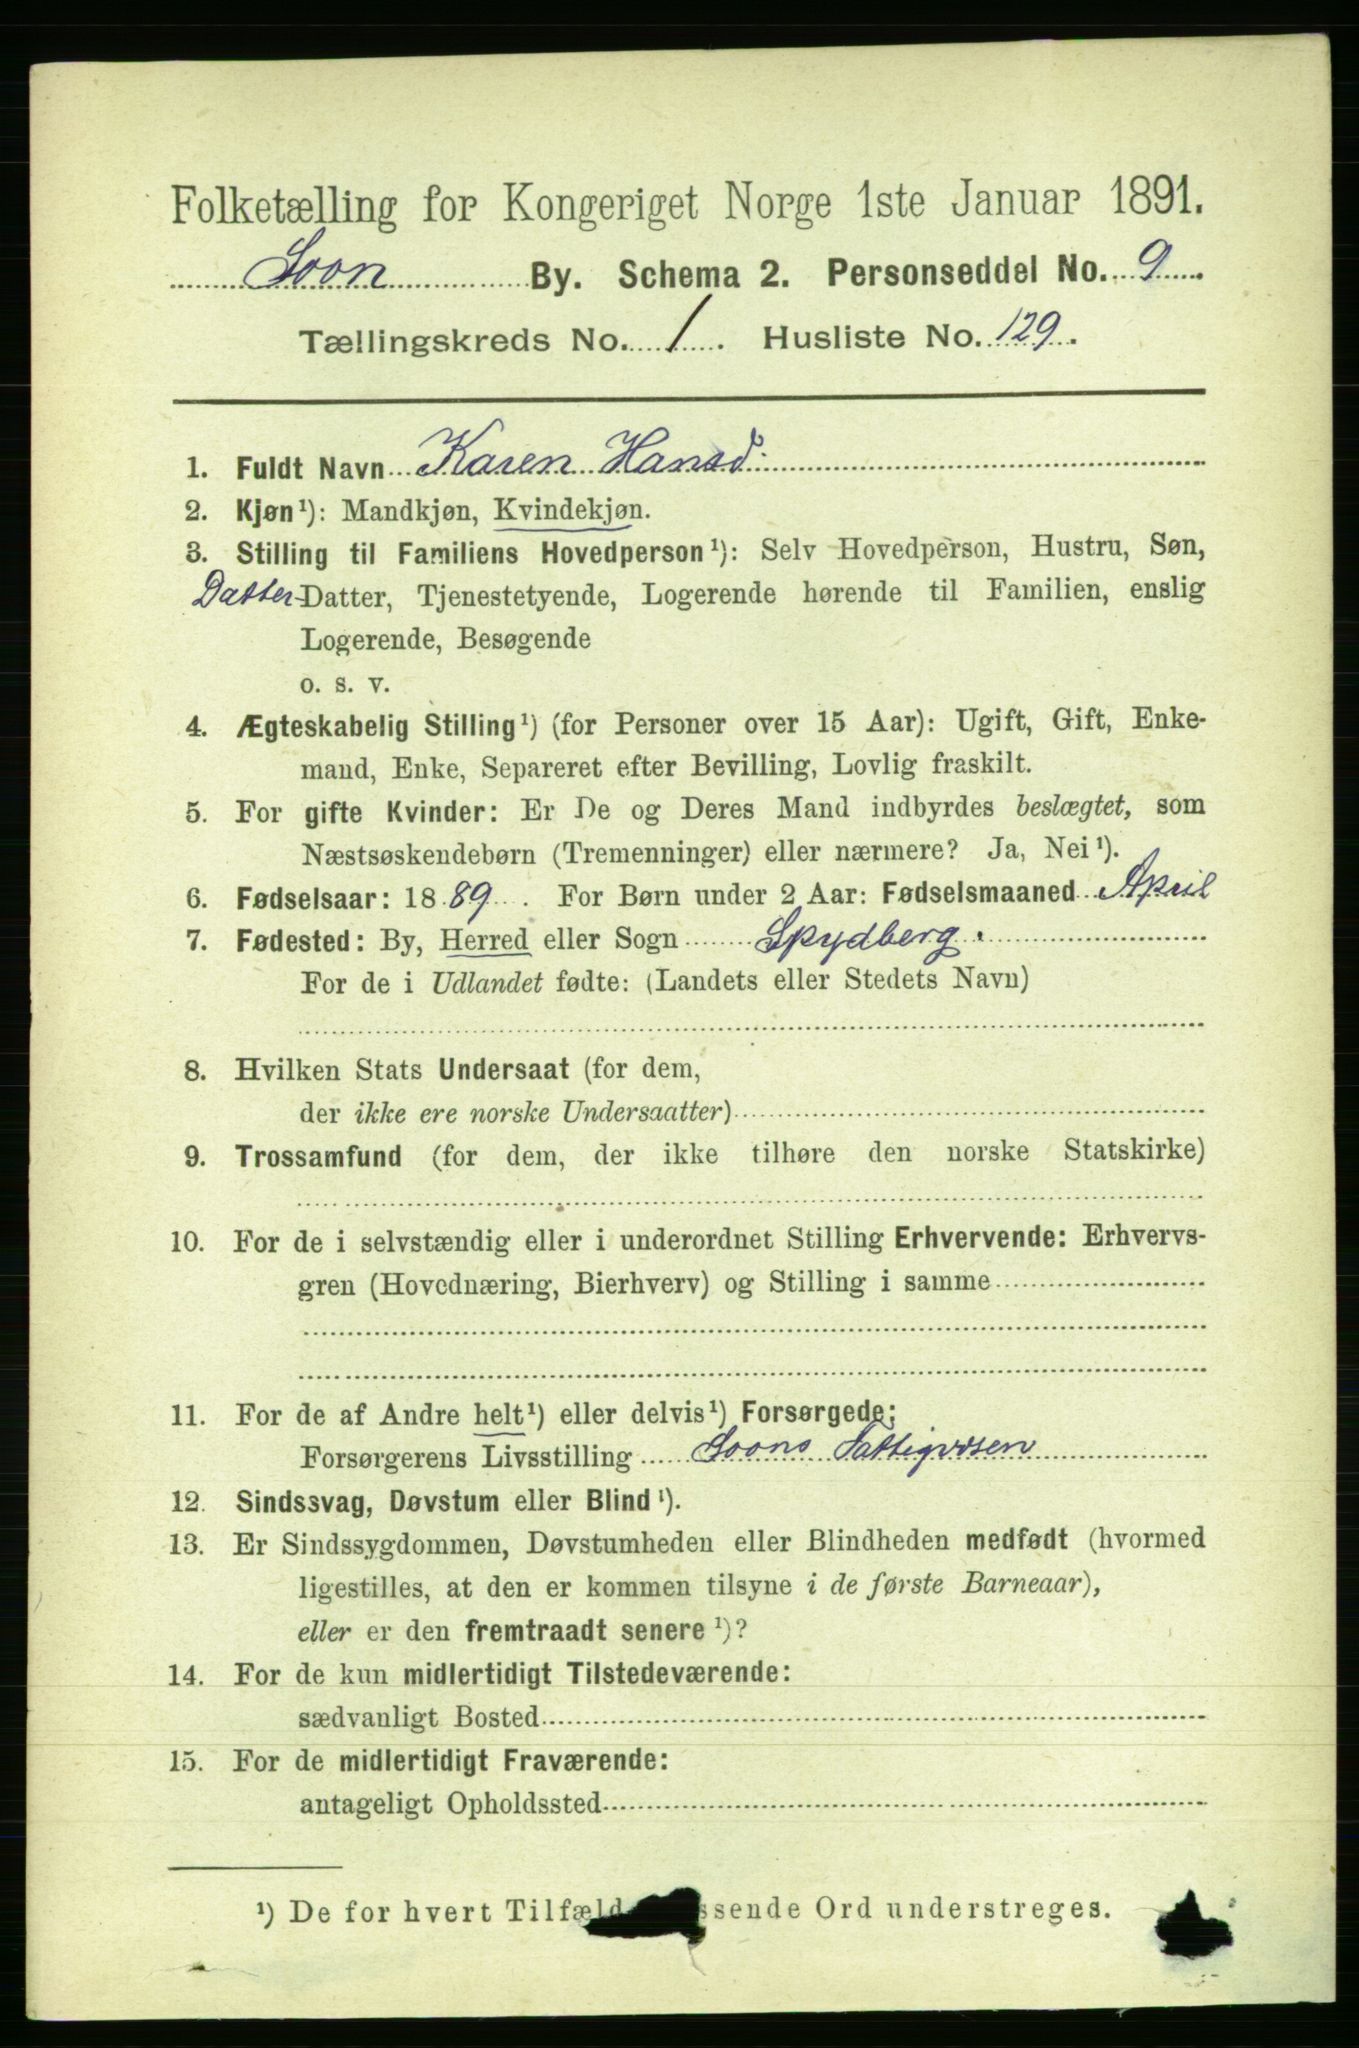 Folketælling for Kongeriget Norge 1ste Januar 1891.
Soon By. Schema 2. Personseddel No. 9
Tællingskreds No. 1. Husliste No. 129.
1. Fuldt Navn Karen Hansd.
2. Kjøn¹): Mandkjøn, Kvindekjøn.
3. Stilling til Familiens Hovedperson¹): Selv Hovedperson, Hustru, Søn,
Datter Datter, Tjenestetyende, Logerende hørende til Familien, enslig
Logerende, Besøgende
o. s. v.
4. Ægteskabelig Stilling¹) (for Personer over 15 Aar): Ugift, Gift, Enke-
mand, Enke, Separeret efter Bevilling, Lovlig fraskilt.
5. For gifte Kvinder: Er De og Deres Mand indbyrdes beslægtet, som
Næstsøskendebørn (Tremenninger) eller nærmere? Ja, Nei¹).
6. Fødselsaar: 1889. For Børn under 2 Aar: Fødselsmaaned April
7. Fødested: By, Herred eller Sogn Spydberg.
For de i Udlandet fødte: (Landets eller Stedets Navn)
8. Hvilken Stats Undersaat (for dem,
der ikke ere norske Undersaatter)
9. Trossamfund (for dem, der ikke tilhøre den norske Statskirke)
10. For de i selvstændig eller i underordnet Stilling Erhvervende: Erhvervs-
gren (Hovednæring, Bierhverv) og Stilling i samme
11. For de af Andre helt¹) eller delvis¹) Forsørgede:
Forsørgerens Livsstilling Soons Fattigvæsen
12. Sindssvag, Døvstum eller Blind¹).
13. Er Sindssygdommen, Døvstumheden eller Blindheden medfødt (hvormed
ligestilles, at den er kommen tilsyne i de første Barneaar),
eller er den fremtraadt senere¹)?
14. For de kun midlertidigt Tilstedeværende:
sædvanligt Bosted
15. For de midlertidigt Fraværende:
antageligt Opholdssted
¹) De for hvert Tilfæld ssende Ord understreges.